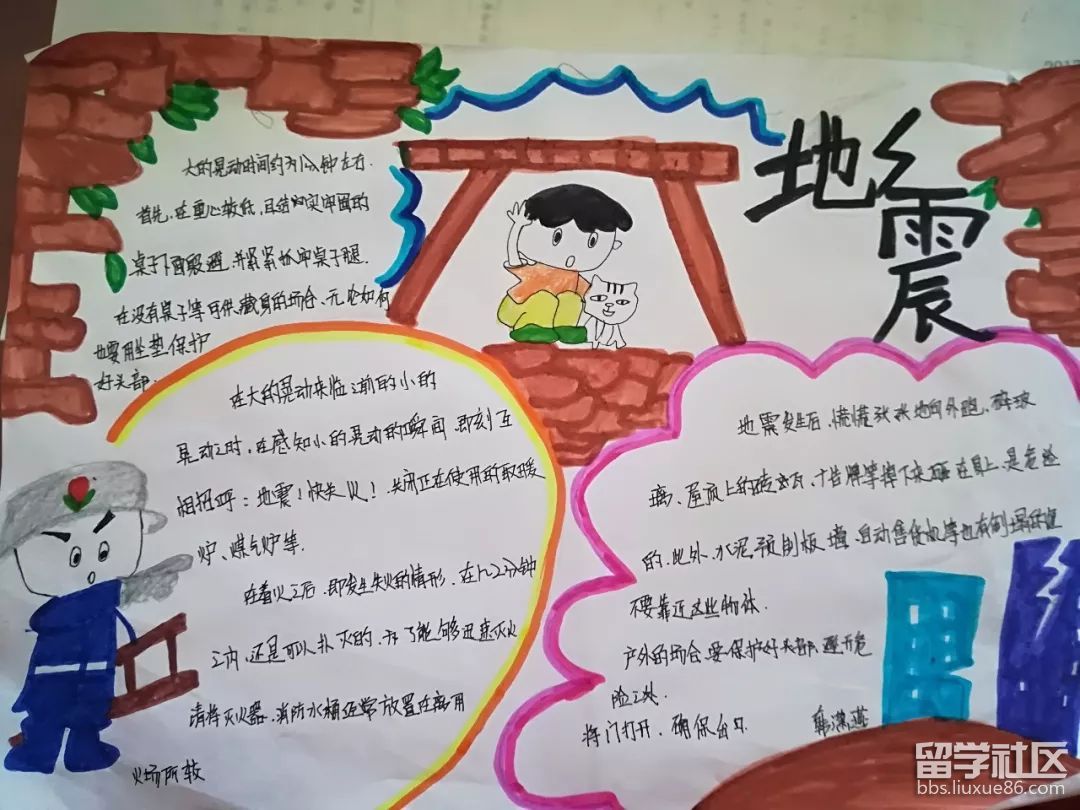 地震
大的晃动时间约为1分钟左右.
首先,在重心较低,且结实牢固的
桌子下面躲避,并紧紧抓牢桌子腿.
在没有桌子等可供藏身的场合,无论如何
也要用坐垫保护
好头部.
在大的晃动来临之前的小的
晃动之时,在感知小的晃动的瞬间,即刻互
相招呼:地震!快关火!,关闭正在使用的取暖
炉、煤气炉等.
在着火之后,即发生失火的情形,在1、2分钟
之内,还是可以扑灭的.为了能够迅速灭火
请将灭火器、消防水桶经常放置在离用
火场所较
地震发生后,慌慌张张地向外跑,碎玻
璃、屋顶上的砖瓦,广告牌等掉下来砸在身上,是危险
的,此外,水泥预制板墙,自动售货机等也有倒塌的危
不要靠近这些物体.
户外的场合,要保护好头部,避开危
险之处.
将门打开,确保出口
留学社区
bbs.liuxue86.com